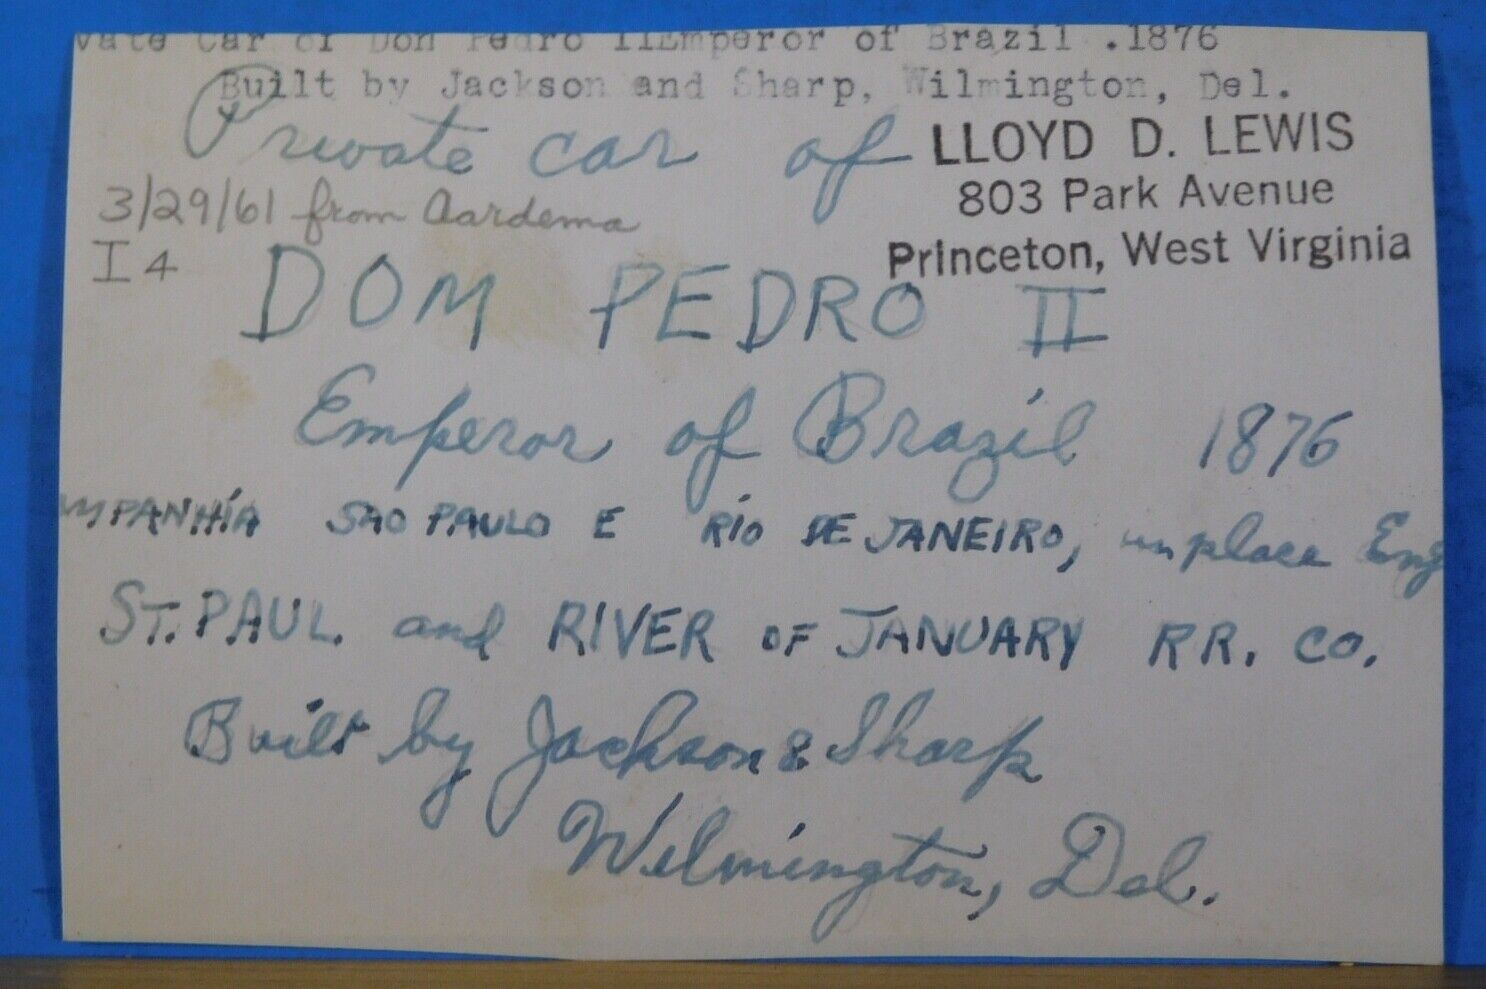 vate Car of Don Pedro IIEmperor of Brazil .1876
Built by Jackson and Sharp, Wilmington, Del.
Private car of
LLOYD D. LEWIS
803 Park Avenue
Princeton, West Virginia
3/29/61 from Aardema
I4
DOM PEDRO II
Emperor of Brazil 1876
MPANHíA SAO PAULO E RíO DE JANEIRO, in place Eng
ST. PAUL. and RIVER OF JANUARY RR. CO.
Built by Jackson & Sharp
Wilmington, Del.